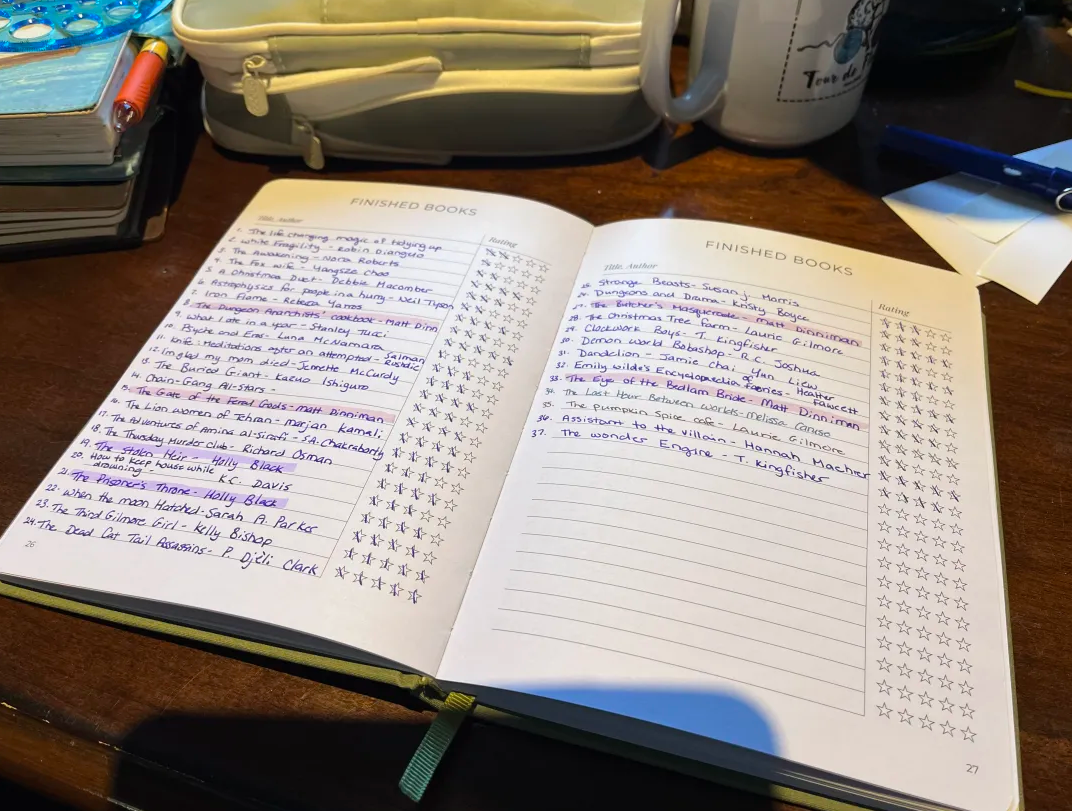 FINISHED BOOKS
Title, Author
Rating
1. The life changing magic of tidying up
2. White Fragility - Robin Diangelo
3. The Awakening - Nora Roberts
4. The Fox wife - Yangsze Choo
5. A Christmas Duet - Debbie Macomber
6. Astrophysics for people in a hurry - Neil Tyson
7. Iron Flame - Rebecca Yarros
8. The Dungeon Anarchists' cookbook - Matt Dinn
9. What I ate in a year - Stanley Tucci
10. Psyche and Eros - Luna McNamara
11. Knife: Meditations after an attempted - Salman Rushdie
12. I'm glad my mom died - Jenette McCurdy
13. The Buried Giant - Kazuo Ishiguro
14. Chain-Gang All-Stars -
15. The Gate of the Feral Gods - matt Dinniman
16. The Lion women of Tehran - marjan kamali
17. The Adventures of Amina al-sirafi - S.A. Chakraborty
18. The Thursday Murder club - Richard Osman
19. The Stolen Heir - Holly Black
20. How to keep house while drowning - K.C. Davis
21. The Prisoner's Throne - Holly Black
22. When the moon Hatched - Sarah A. Parker
23. The Third Gilmore Girl - Kelly Bishop
24. The Dead Cat Tail Assassins - P. Djèlí Clark
26
FINISHED BOOKS
Title, Author
Rating
25. Strange Beasts - Susan J. Morris
26. Dungeons and Drama - Kristy Boyce
27. The Butcher's Masquerade - matt Dinniman
28. The Christmas Tree farm - Laurie Gilmore
29. Clockwork Boys - T. Kingfisher
30. Demon world Bobashop - R.C. Joshua
31. Dandelion - Jamie Chai Yun Liew
32. Emily wilde's Encyclopaedia of faeries - Heather Fawcett
33. The Eye of the Bedlam Bride - Matt Dinniman
34. The Last Hour Between worlds - melissa Caruso
35. The pumpkin Spice cafe - Laurie Gilmore
36. Assistant to the Villain - Hannah Maehrer
37. The wonder Engine - T. kingfisher
27
Tour de